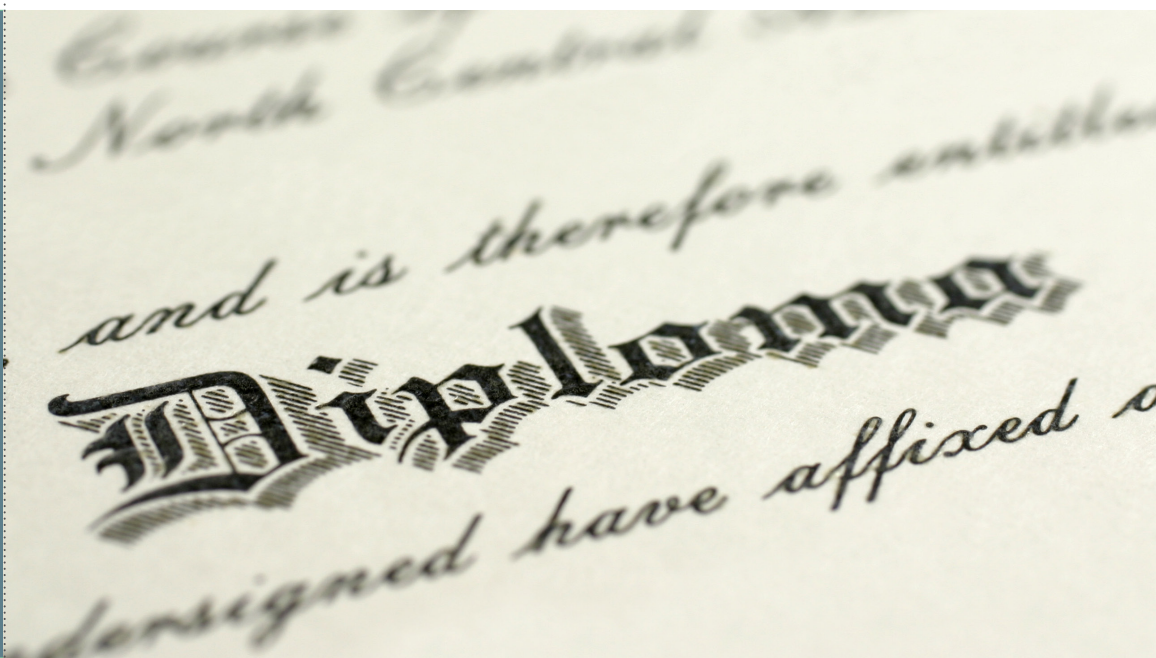 North Central
and is therefore
Diploma
dersigned have affixed